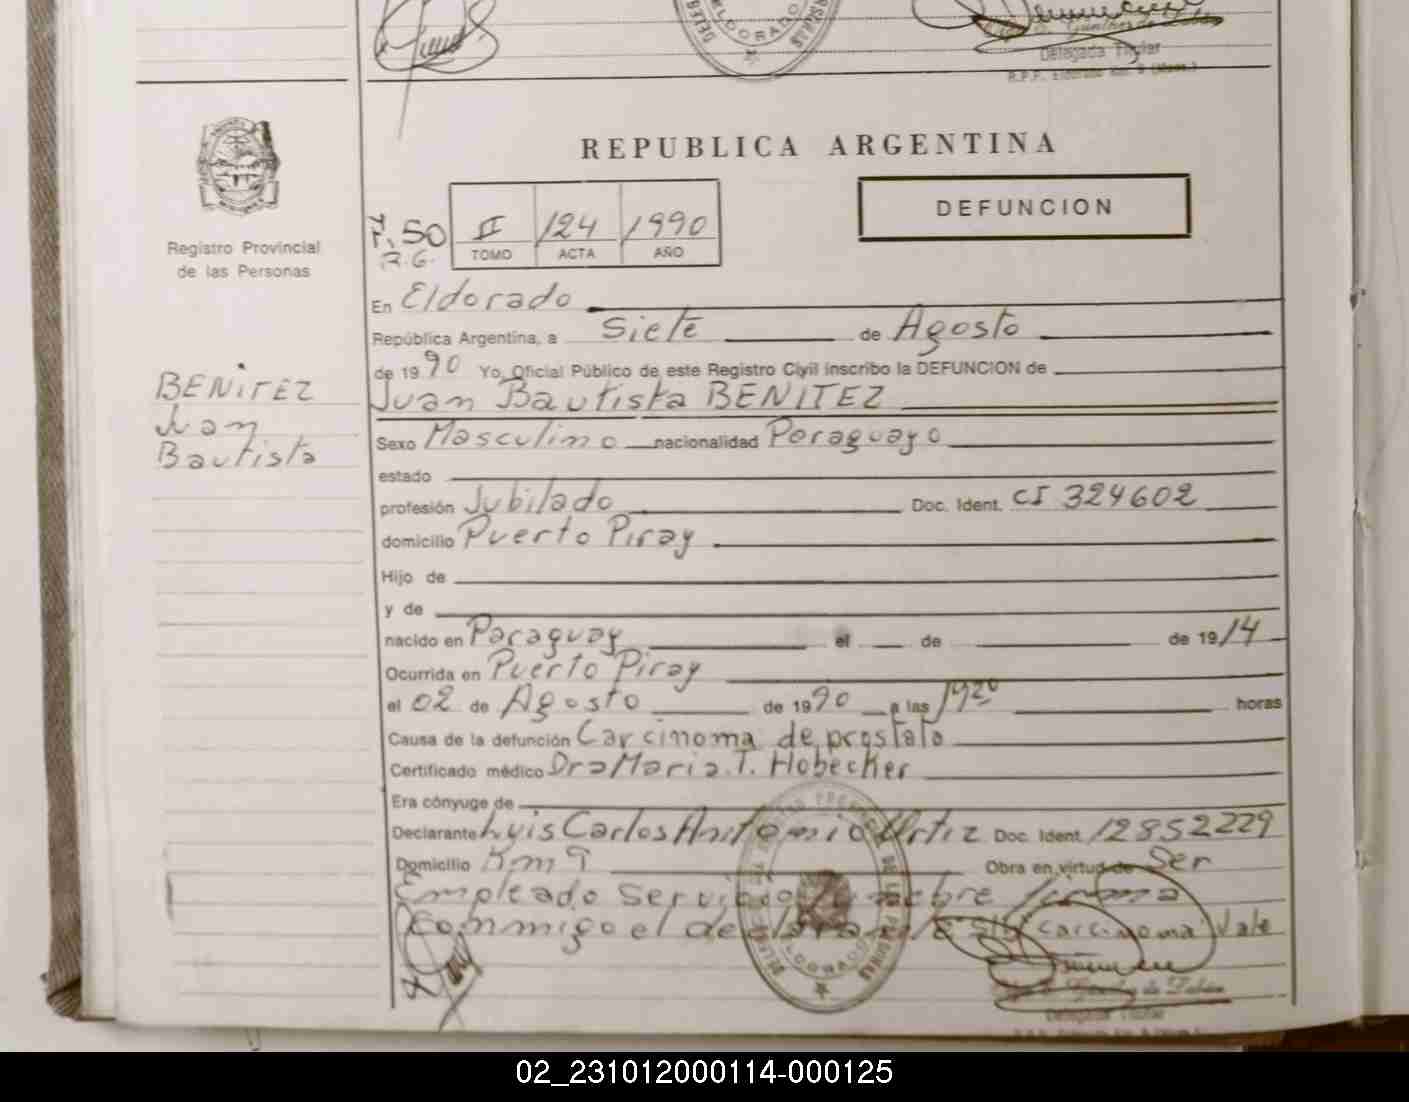 DELEG
ELDORADO
Delegada Titular
REPUBLICA ARGENTINA
DEFUNCION
F. 50
R.G.
II 124 1990
TOMO ACTA AÑO
Registro Provincial
de las Personas
En Eldorado
República Argentina, a Siete de Agosto
de 1990 Yo, Oficial Público de este Registro Civil inscribo la DEFUNCION de
Juan Bautista BENITEZ
BENITEZ
Juan
Bautista
Sexo Masculino nacionalidad Paraguayo
estado
profesión Jubilado Doc. Ident. CI 324602
domicilio Puerto Piray
Hijo de
y de
nacido en Paraguay el de de 1914
Ocurrida en Puerto Piray
el 02 de Agosto de 1990 a las 1920 horas
Causa de la defunción Carcinoma de prostata
Certificado médico Dra Maria. T. Hobecker
Era cónyuge de
Declarante Luis Carlos Antonio Ortiz Doc. Ident. 12852229
Domicilio Km 9 Obra en virtud de Ser
Empleado Servicio Funebre firma
Conmigo el declarante S/r "carcinoma" Vale
ELDORADO
Delegada Titular
02_231012000114-000125